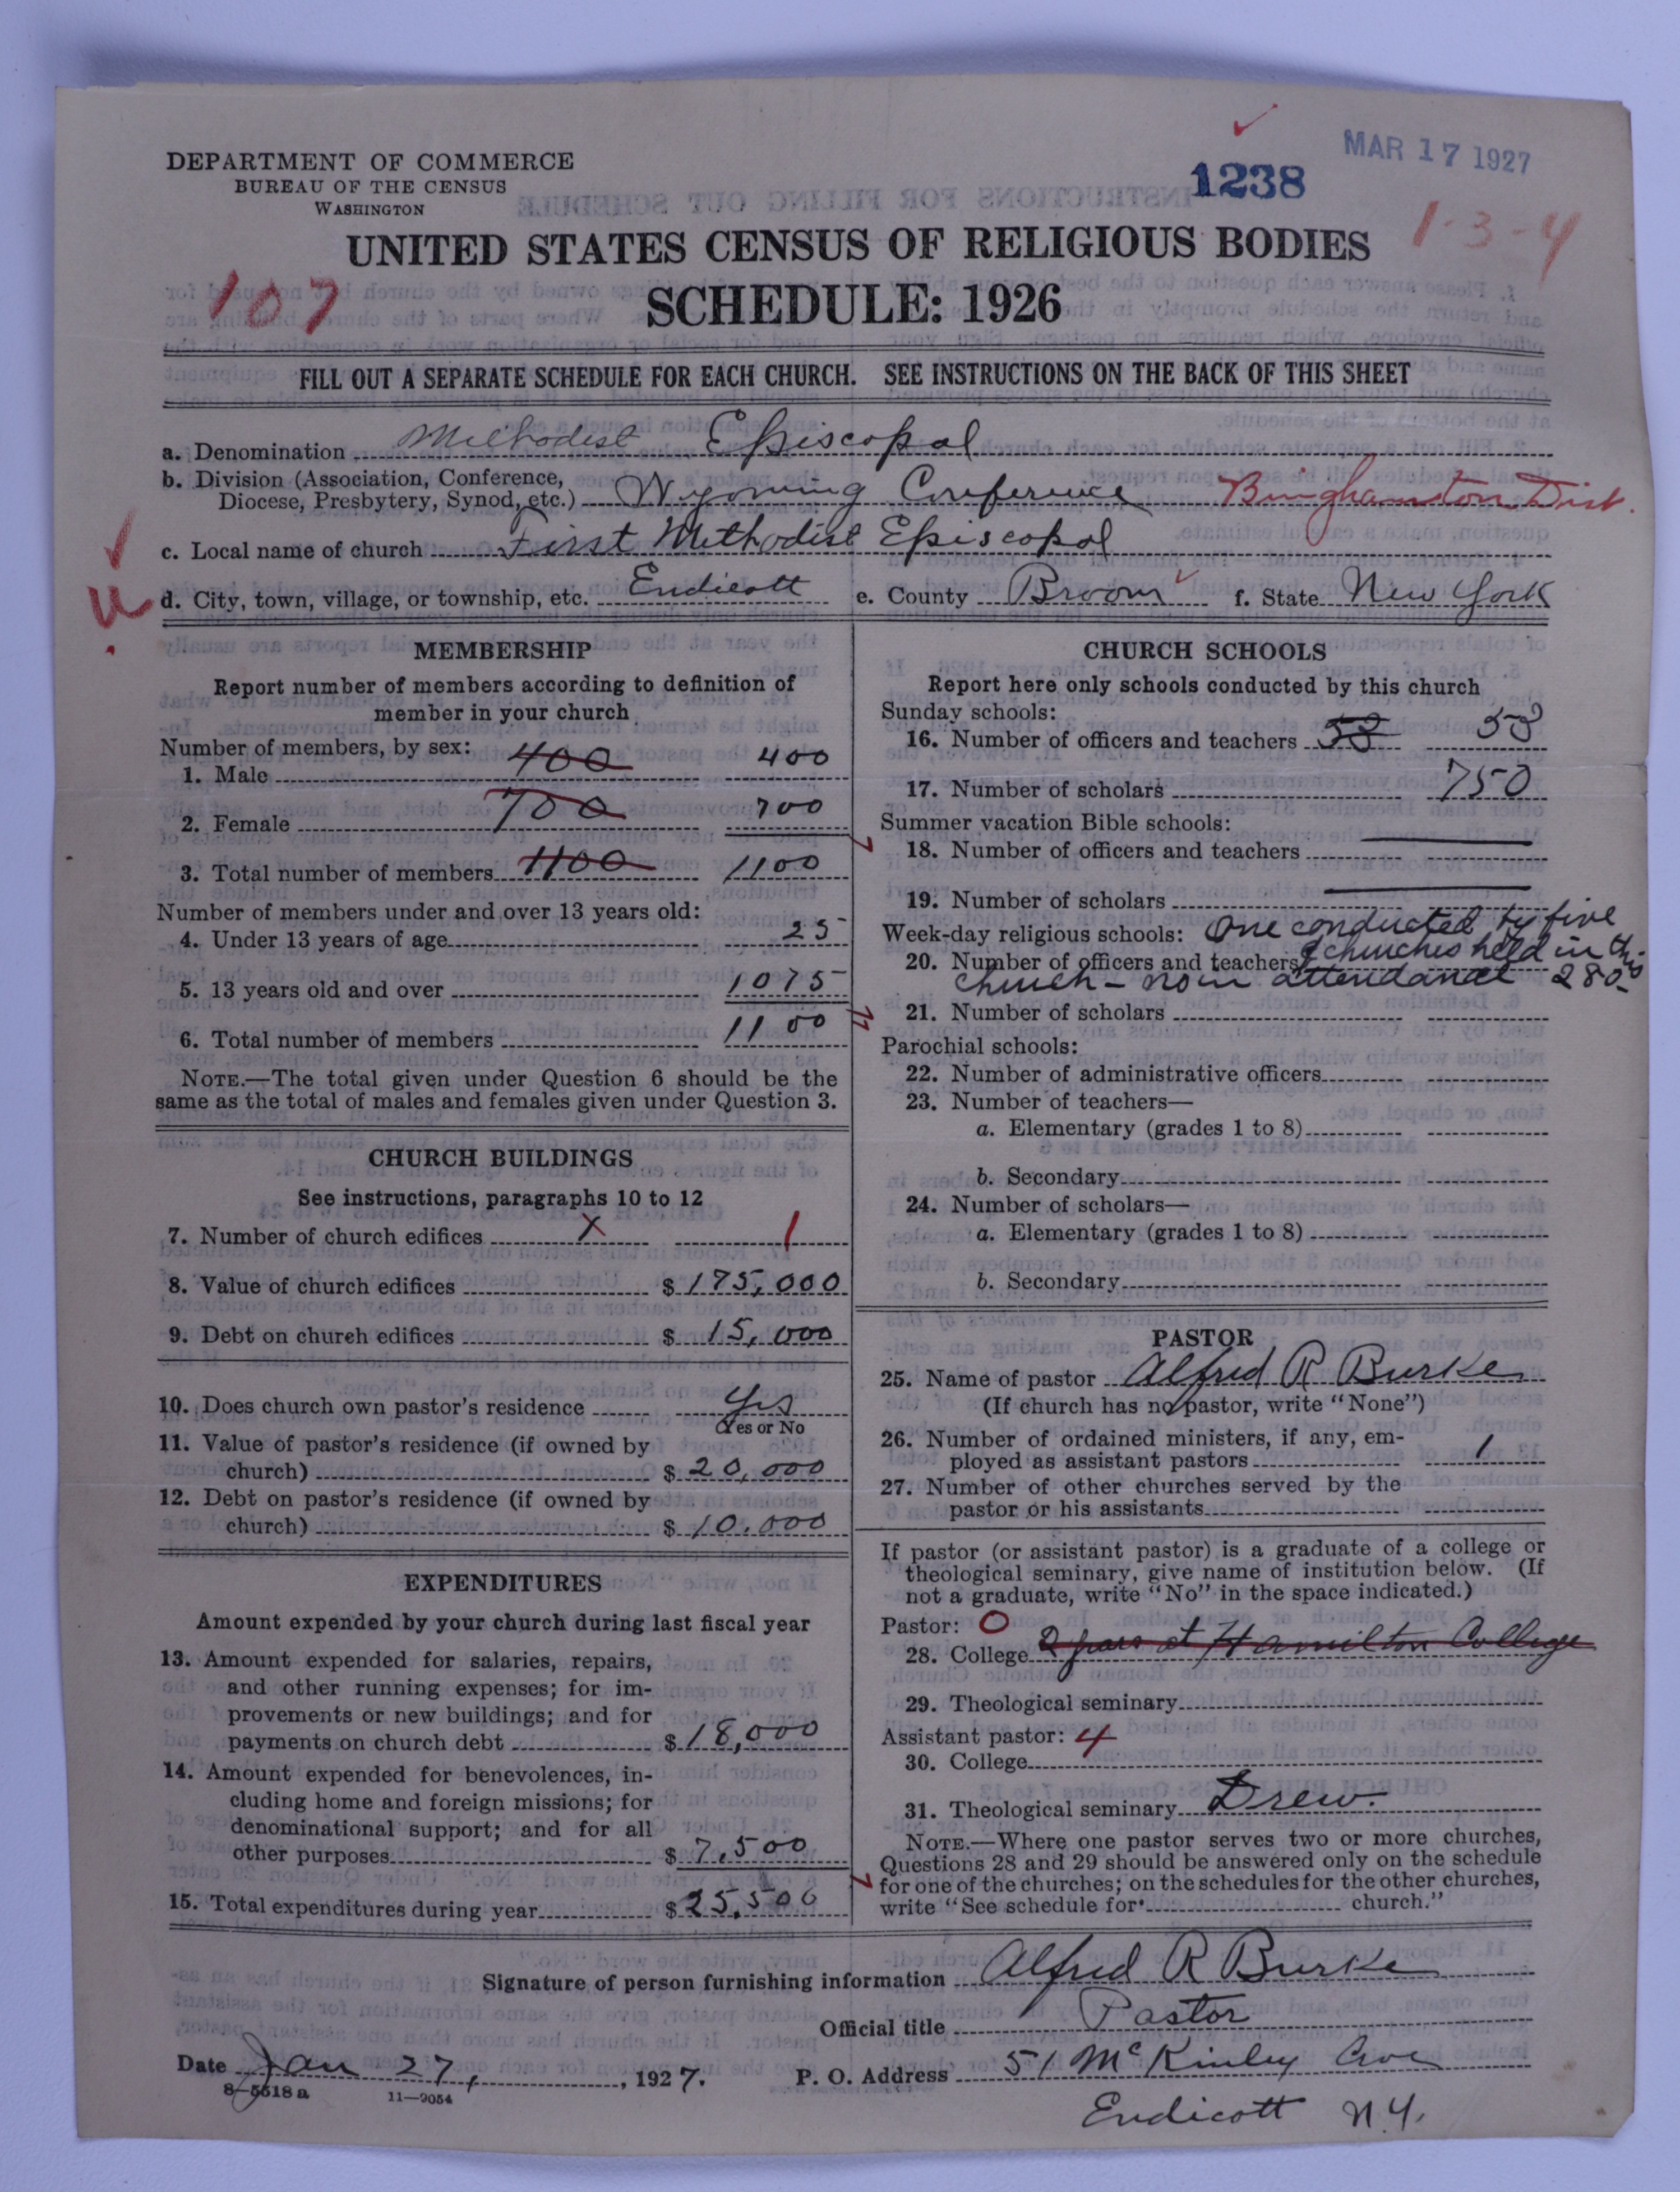 DEPARTMENT OF COMMERCE
BUREAU OF THE CENSUS
WASHINGTON
1238
MAR 17 1927
1-3-4
UNITED STATES CENSUS OF RELIGIOUS BODIES
107
SCHEDULE: 1926
FILL OUT A SEPARATE SCHEDULE FOR EACH CHURCH. SEE INSTRUCTIONS ON THE BACK OF THIS SHEET
a. Denomination Methodist Episcopal
b. Division (Association, Conference,
Diocese, Presbytery, Synod, etc.) Wyoming Conference Binghamton Dist.
c. Local name of church First Methodist Episcopal
d. City, town, village, or township, etc. Endicott e. County Broom f. State New York
MEMBERSHIP
Report number of members according to definition of
member in your church
Number of members, by sex:
1. Male 400 400
2. Female 700 700
3. Total number of members 1100 1100
Number of members under and over 13 years old:
4. Under 13 years of age 25
5. 13 years old and over 1075
6. Total number of members 1100
NOTE.—The total given under Question 6 should be the
same as the total of males and females given under Question 3.
CHURCH BUILDINGS
See instructions, paragraphs 10 to 12
7. Number of church edifices x 1
8. Value of church edifices $ 175,000
9. Debt on church edifices $ 15,000
10. Does church own pastor's residence Yes
Yes or No
11. Value of pastor's residence (if owned by
church) $ 20,000
12. Debt on pastor's residence (if owned by
church) $ 10.000
EXPENDITURES
Amount expended by your church during last fiscal year
13. Amount expended for salaries, repairs,
and other running expenses; for im-
provements or new buildings; and for
payments on church debt $ 18,000
14. Amount expended for benevolences, in-
cluding home and foreign missions; for
denominational support; and for all
other purposes $ 7,500
15. Total expenditures during year $ 25,500
CHURCH SCHOOLS
Report here only schools conducted by this church
Sunday schools:
16. Number of officers and teachers 53 53
17. Number of scholars 750
Summer vacation Bible schools:
18. Number of officers and teachers
19. Number of scholars
Week-day religious schools: One conducted by five
20. Number of officers and teachers churches held in this
church - now attendance 280-
21. Number of scholars
Parochial schools:
22. Number of administrative officers
23. Number of teachers—
a. Elementary (grades 1 to 8)
b. Secondary
24. Number of scholars—
a. Elementary (grades 1 to 8)
b. Secondary
PASTOR
25. Name of pastor Alfred R Burke
(If church has no pastor, write "None")
26. Number of ordained ministers, if any, em-
ployed as assistant pastors 1
27. Number of other churches served by the
pastor or his assistants
If pastor (or assistant pastor) is a graduate of a college or
theological seminary, give name of institution below. (If
not a graduate, write "No" in the space indicated.)
Pastor: 0
28. College 2 years at Hamilton College
29. Theological seminary
Assistant pastor: 4
30. College
31. Theological seminary Drew.
NOTE.—Where one pastor serves two or more churches,
Questions 28 and 29 should be answered only on the schedule
for one of the churches; on the schedules for the other churches,
write "See schedule for church."
Signature of person furnishing information Alfred R Burke
Official title Pastor
Date Jan 27, , 1927. P. O. Address 51 McKinley Ave
8-5518a 11-9054
Endicott N.Y.